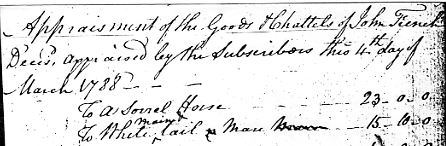 Appraisment of the Goods & Chattels of John
Decd. appraised by the Subscribers this 4th day of
March 1788 - - -
To a Sorrel Horse - - - 23-0-0
To White main, tail Mare - 15-10-0